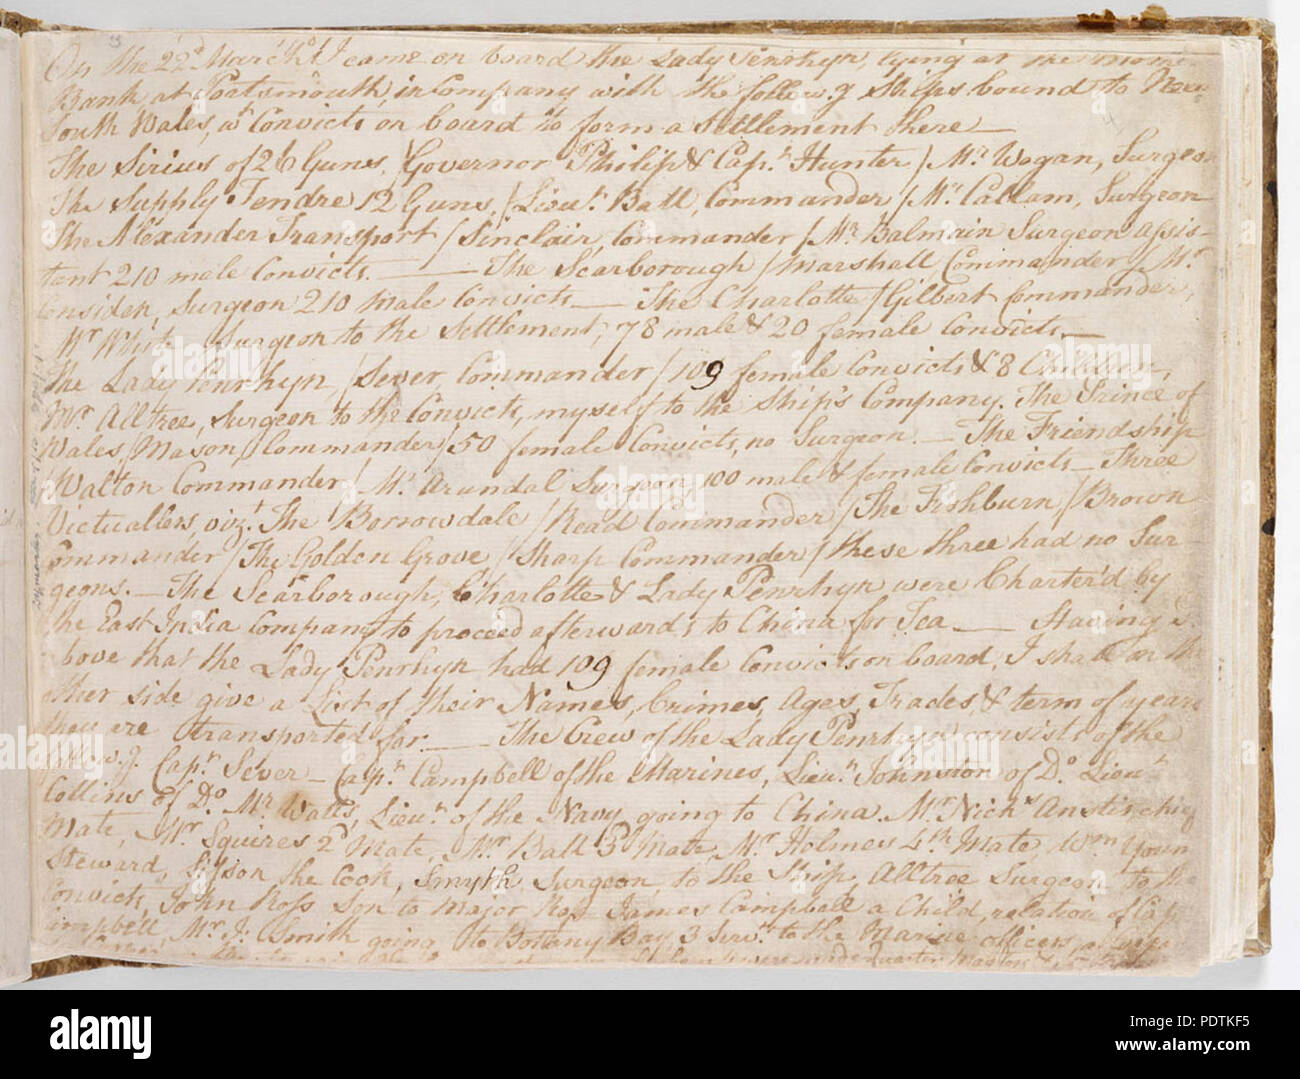 On the 22d March I came on board the Lady Penrhyn, lying at the
Bank at Portsmouth, in Company with the follow.g Ships bound to New
South Wales, wt. Convicts on board to form a Settlement there —
The Sirius of 26 Guns, Governor Philip & Capn. Hunter / Mr. Wogan, Surgeon
The Supply Tendre 12 Guns, / Lieut. Ball, Commander / Mr. Callam, Surgeon
The Alexander Transport / Sinclair, Commander / Mr. Balmain Surgeon assis-
tant 210 male Convicts. —— The Scarborough / Marshall, Commander / Mr.
Considen, Surgeon 210 Male Convicts — The Charlotte / Gilbert Commander,
Mr White Surgeon to the Settlement, 78 male & 20 female Convicts —
The Lady Penrhyn, / Sever, Commander / 109 female Convicts & 8 Children,
Mr. Alltree, Surgeon to the Convicts, myself to the Ship's Company. The Prince of
Wales / Mason, Commander / 50 female Convicts, no Surgeon. — The Friendship
Walton Commander, Mr. Arundal Surgeon, 100 male & female Convicts — Three
Victuallers, vizt. The Borrowdale / Read Commander / The Fishburn / Brown
Commander / The Golden Grove / Sharp Commander / these three had no Sur
geons. — The Scarborough, Charlotte & Lady Penrhyn were Charter'd by
the East India Company to proceed afterwards to China for Tea —— Having
bove that the Lady Penrhyn had 109 female Convicts on board, I shall on the
other side give a List of their Names, Crimes, Ages, Trades, & term of years
they are transported for. —— The Crew of the Lady Penrhyn consists of the
follow.g. Capn. Sever — Capn. Campbell of the Marines, Lieun. Johnston of Do. Lieun.
Collins of Do. Mr. Watts, Lieun. of the Navy going to China. Mr. Nichs. Anstis chief
Mate, Mr. Squires 2d Mate, Mr. Ball 3d Mate Mr. Holmes 4th Mate Wm. Youn
Steward, the Cook, Smyth Surgeon to the Ship, Alltree Surgeon to the
Convicts, John Ross Son to Major Ross James Campbell a Child, relation of Cap
Campbell, Mr. J: Smith going to Bottany Bay, 3 Serv.ts to the Marine officers,
alamy
a
Image ID: PDTKF5
www.alamy.com